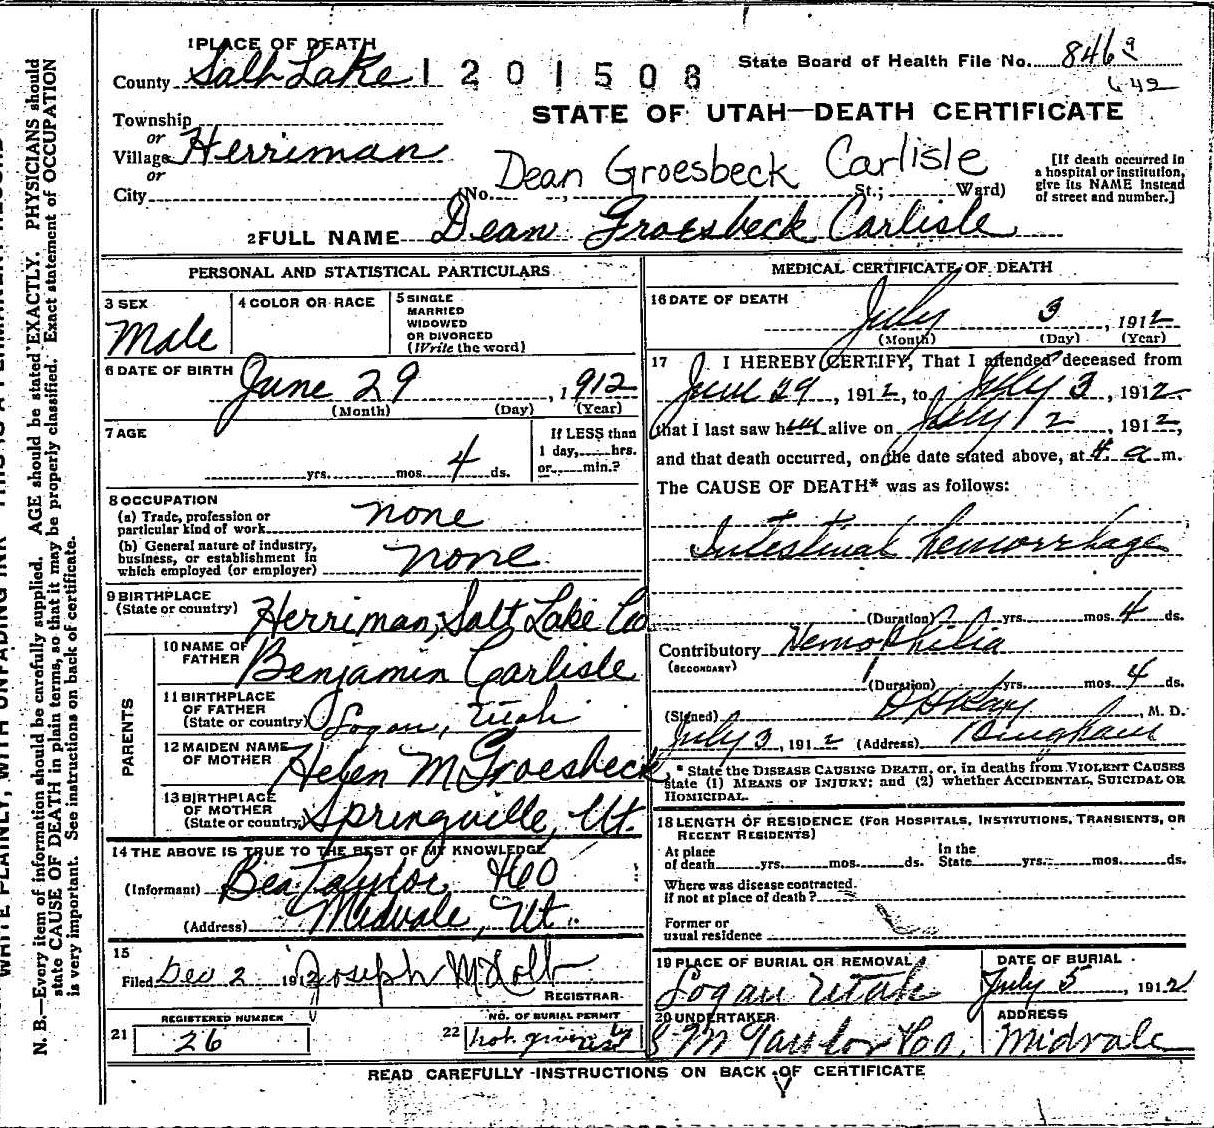 1 PLACE OF DEATH
County Salt Lake 1201508 State Board of Health File No. 846
STATE OF UTAH—DEATH CERTIFICATE
Township
or
Village Herriman
or
City (No. , St.; Ward)
Dean Groesbeck Carlisle
[If death occurred in
a hospital or institution,
give its NAME instead
of street and number.]
2 FULL NAME Dean Groesbeck Carlisle
PERSONAL AND STATISTICAL PARTICULARS
3 SEX
Male
4 COLOR OR RACE
5 SINGLE
MARRIED
WIDOWED
OR DIVORCED
(Write the word)
6 DATE OF BIRTH
June 29, 1912
(Month) (Day) (Year)
7 AGE
yrs. mos. 4 ds.
If LESS than
1 day, hrs.
or min.?
8 OCCUPATION
(a) Trade, profession or
particular kind of work none
(b) General nature of industry,
business, or establishment in
which employed (or employer) none
9 BIRTHPLACE
(State or country) Herriman, Salt Lake Co
PARENTS
10 NAME OF
FATHER Benjamin Carlisle
11 BIRTHPLACE
OF FATHER
(State or country) Logan, Utah
12 MAIDEN NAME
OF MOTHER Helen M Groesbeck
13 BIRTHPLACE
OF MOTHER
(State or country) Springville, Ut.
14 THE ABOVE IS TRUE TO THE BEST OF MY KNOWLEDGE
(Informant) Bea Taylor
(Address) Midvale, Ut.
15
Filed Dec 2 1912 Joseph M
REGISTRAR
REGISTERED NUMBER
21 26
NO. OF BURIAL PERMIT
22 not given
MEDICAL CERTIFICATE OF DEATH
16 DATE OF DEATH
July 3, 1912
(Month) (Day) (Year)
17 I HEREBY CERTIFY, That I attended deceased from
June 29, 1912, to July 3, 1912.
that I last saw him alive on July 2, 1912,
and that death occurred, on the date stated above, at 4 a m.
The CAUSE OF DEATH* was as follows:
Intestinal hemorrhage
(Duration) yrs. mos. 4 ds.
Contributory Hemophilia
(SECONDARY)
(Duration) yrs. mos. 4 ds.
(Signed) Ray, M. D.
July 3, 1912 (Address) Bingham
* State the DISEASE CAUSING DEATH, or, in deaths from VIOLENT CAUSES
state (1) MEANS OF INJURY; and (2) whether ACCIDENTAL, SUICIDAL OR
HOMICIDAL.
18 LENGTH OF RESIDENCE (FOR HOSPITALS, INSTITUTIONS, TRANSIENTS, OR
RECENT RESIDENTS)
At place
of death yrs. mos. ds.
In the
State yrs. mos. ds.
Where was disease contracted
if not at place of death?
Former or
usual residence
19 PLACE OF BURIAL OR REMOVAL
Logan Utah
DATE OF BURIAL
July 5, 1912
20 UNDERTAKER
S M Taylor Co.
ADDRESS
Midvale
READ CAREFULLY INSTRUCTIONS ON BACK OF CERTIFICATE
N. B.—Every item of information should be carefully supplied. AGE should be stated EXACTLY. PHYSICIANS should
state CAUSE OF DEATH in plain terms, so that it may be properly classified. Exact statement of OCCUPATION
is very important. See instructions on back of certificate.
WRITE PLAINLY, WITH UNFADING INK—THIS IS A PERMANENT RECORD